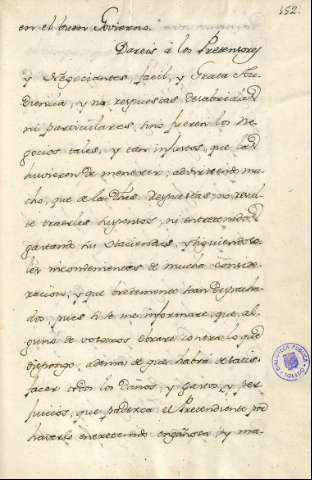 152.
en el buen Govierno.
Dareis à los Pretensores
y Negociantes, facil, y Grata Au-
diencia, y no respuestas desabridas,
ni particulares, sino fueren los Ne-
gocios tales, y tan injustos, que las
huvieren de menester, advirtiendo mu-
cho, que de la Dhas respuestas no resul-
te traerles suspensos, ni entretenidos,
gastando sus Haciendas, y siguiendose-
les incombenientes de mucha conside-
racion, y que brebemente sean Despacha-
dos, pues si se me informare, que al-
guno de vosotros obrare contra lo que
dispongo, demas de que habrá de satis-
facer todos los Daños, y gastos, y per-
juicios, que padezca el Pretendiente por
haverle entretenido engañosa, y ma-
BIBLIOTECA PUBLICA
TOLEDO